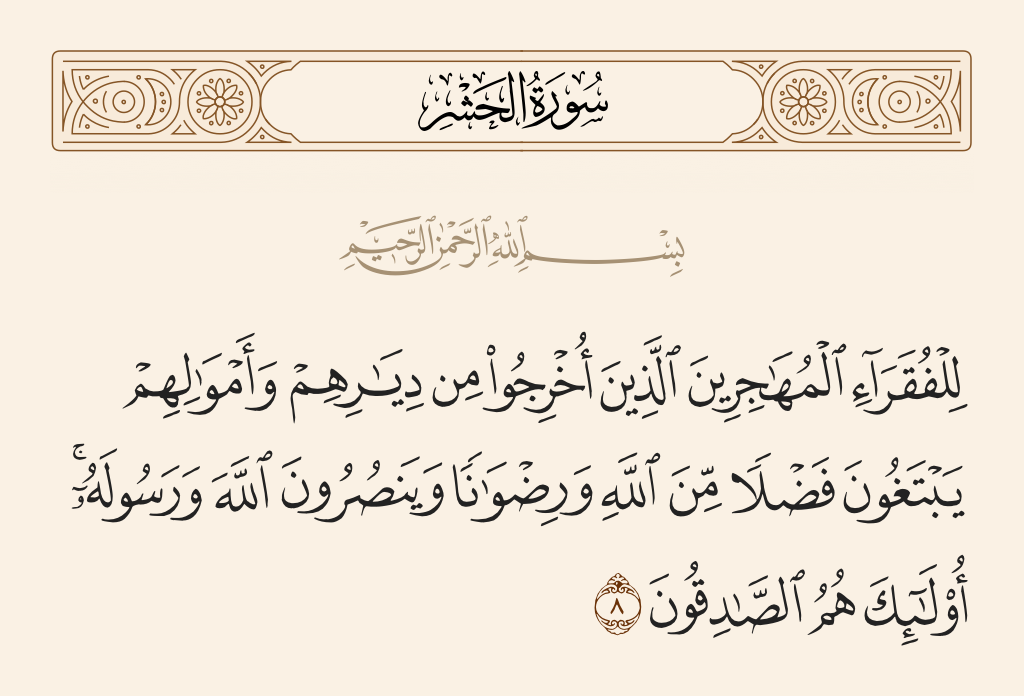 سُورَةُ الحَشْرِ
بِسْمِ ٱللَّهِ ٱلرَّحْمَٰنِ ٱلرَّحِيمِ
لِلْفُقَرَآءِ ٱلْمُهَٰجِرِينَ ٱلَّذِينَ أُخْرِجُوا۟ مِن دِيَٰرِهِمْ وَأَمْوَٰلِهِمْ
يَبْتَغُونَ فَضْلًا مِّنَ ٱللَّهِ وَرِضْوَٰنًا وَيَنصُرُونَ ٱللَّهَ وَرَسُولَهُۥٓ ۚ
أُو۟لَٰٓئِكَ هُمُ ٱلصَّٰدِقُونَ ٨